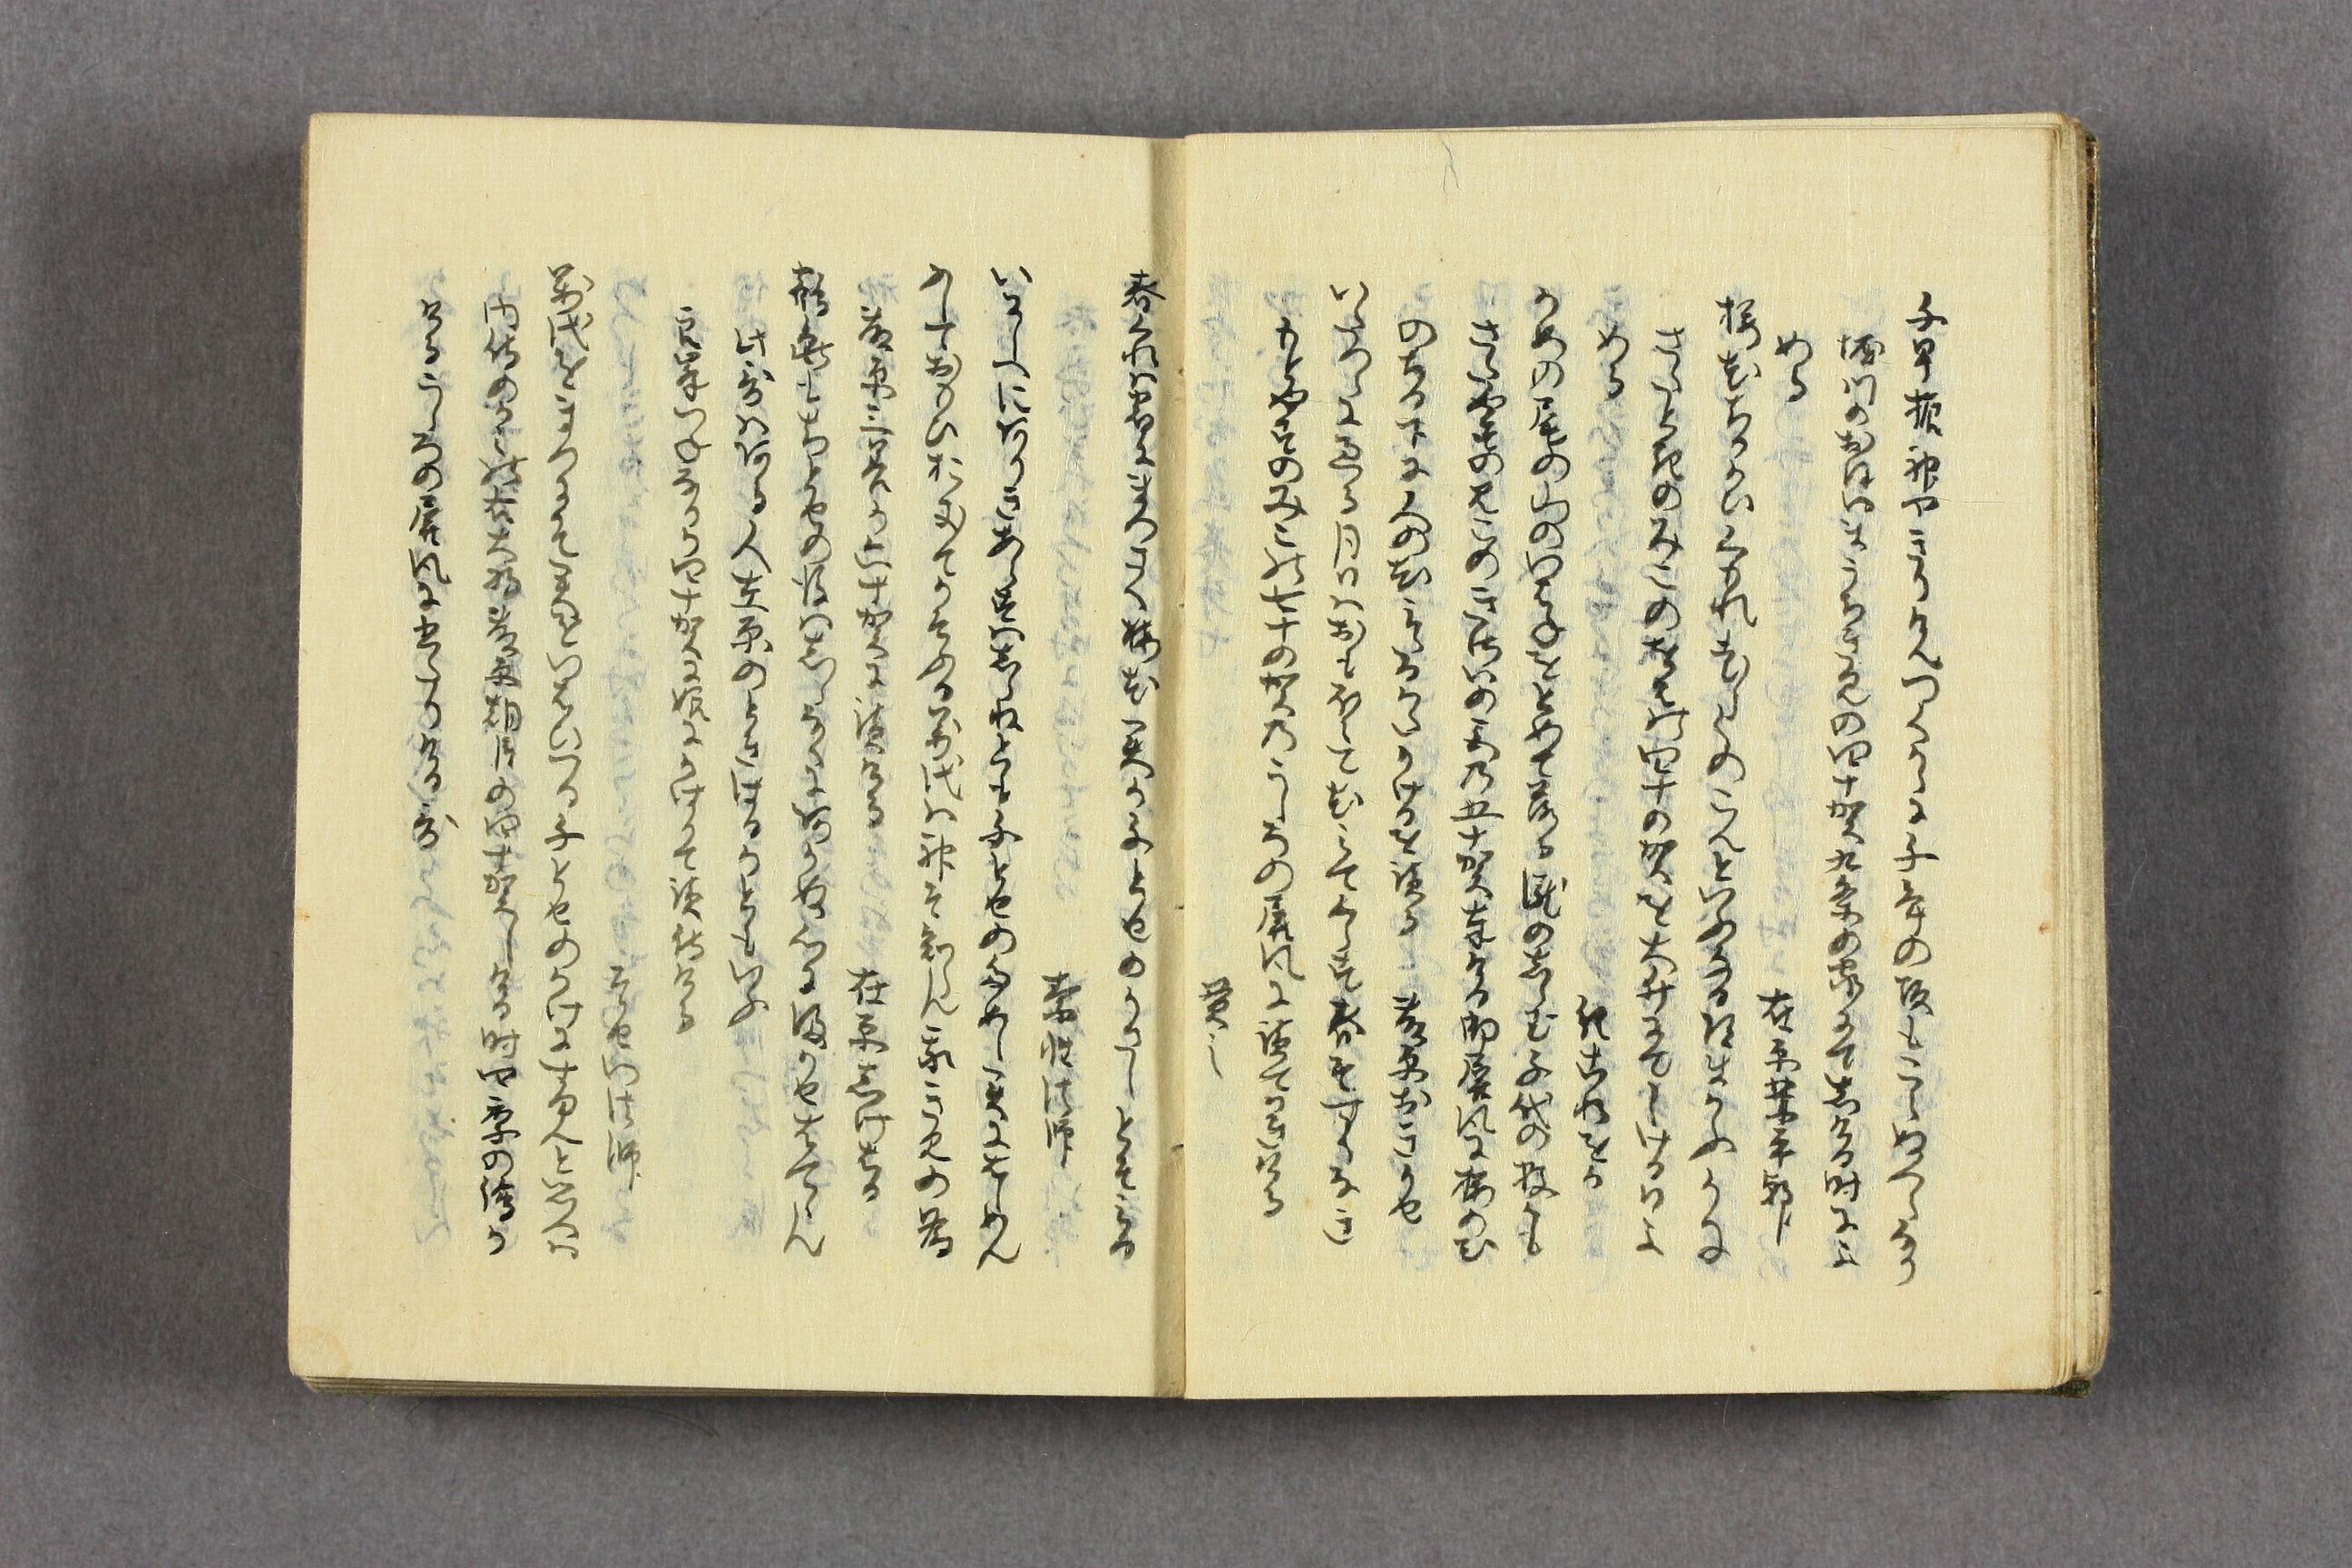 千早振神やきりけんつくからに千年の坂もこえぬへらなり
堀川のおほいまうちきみの四十賀九条の家にてしける時によ
める 在原業平朝臣
桜花ちりかひくもれ老らくのこんといふなる道まかふかに
さたときのみこのをはの四十の賀を大井にてしける日よ
める 紀これをか
かめの尾の山の岩ねをとめておつる瀧の白玉千世の数かも
さたやすのみこのきさいの宮の五十賀奉ける御屏風に桜の花
のちるしたに人の花見たるかたかけるをよめる 藤原おきかせ
いたつらに過る月日はおもほえて花みてくらす春そすくなき
もとやすのみこの七十の賀のうしろの屏風によみてかきける
貫之
春くれは宿にまつさく梅花君か千とせのかさしとそみる
素性法師
いにしへにありきあらすはしらねとも千とせのためし君にはしめん
ふしておもひおきてかそふる万代は神そ知らんわかきみの為
藤原三善か六十賀によみける 在原しけはる
鶴亀も千とせの後はしらなくにあかぬ心にまかせはててん
此哥はある人在原のときはるかともいふ
よしみねのつねなりか四十賀にむすめにかはりてよみ侍ける
そせい法師
万代をまつにそ君をいはひつる千とせのかけにすまんと思へは
内侍のかみの右大将藤原朝臣の四十賀しける時四季の絵か
けるうしろの屏風にかきたりける哥